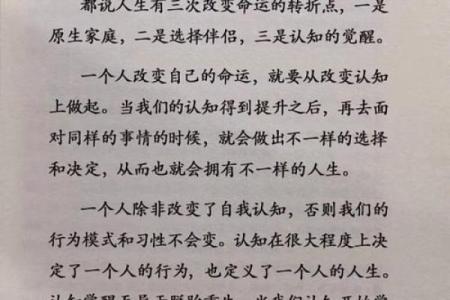 都说人生有三次改变命运的转折点，一是
原生家庭，二是选择伴侣，三是认知的觉醒。
一个人改变自己的命运，就要从改变认知
上做起。当我们的认知得到提升之后，再去面
对同样的事情的时候，就会做出不一样的选择
和决定，从而也就会拥有不一样的人生。
一个人除非改变了自我认知，否则我们的
行为模式和习性不会变。认知在很大程度上决
定了一个人的行为，也定义了一个人的人生。